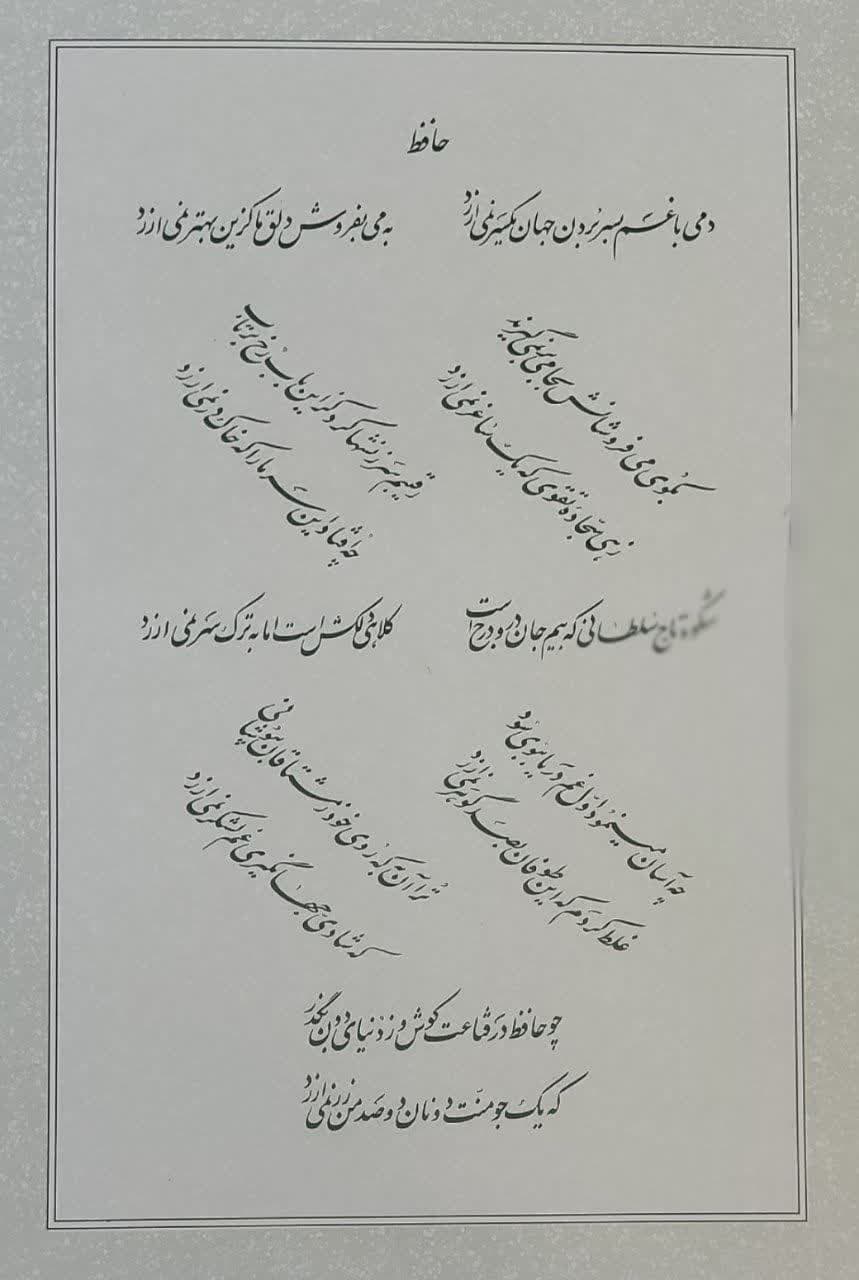 حافظ
دمی با غم بسر بردن جهان یکسر نمی ارزد
به می بفروش دلق ما کزین بهتر نمی ارزد
بکوی می فروشانش بجامی بر نمی گیرند
زهی سجاده تقوی که یک ساغر نمی ارزد
رقیبم سرزنشها کرد کز این باب رخ برتاب
چه افتاد این سر ما را که خاک در نمی ارزد
شکوه تاج سلطانی که بیم جان درو درج است
کلاهی دلکش است اما به ترک سر نمی ارزد
چه آسان مینمود اول غم دریا ببوی سود
غلط کردم که این طوفان بصد گوهر نمی ارزد
ترا آن به که روی خود ز مشتاقان بپوشانی
که شادی جهانگیری غم لشکر نمی ارزد
چو حافظ در قناعت کوش و ز دنیای دون بگذر
که یک جو منّت دونان دو صد من زر نمی ارزد